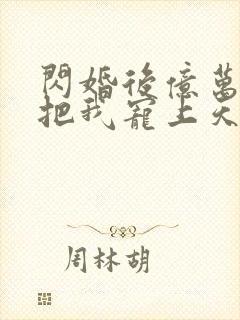 閃婚後億萬
把我寵上天
周林胡